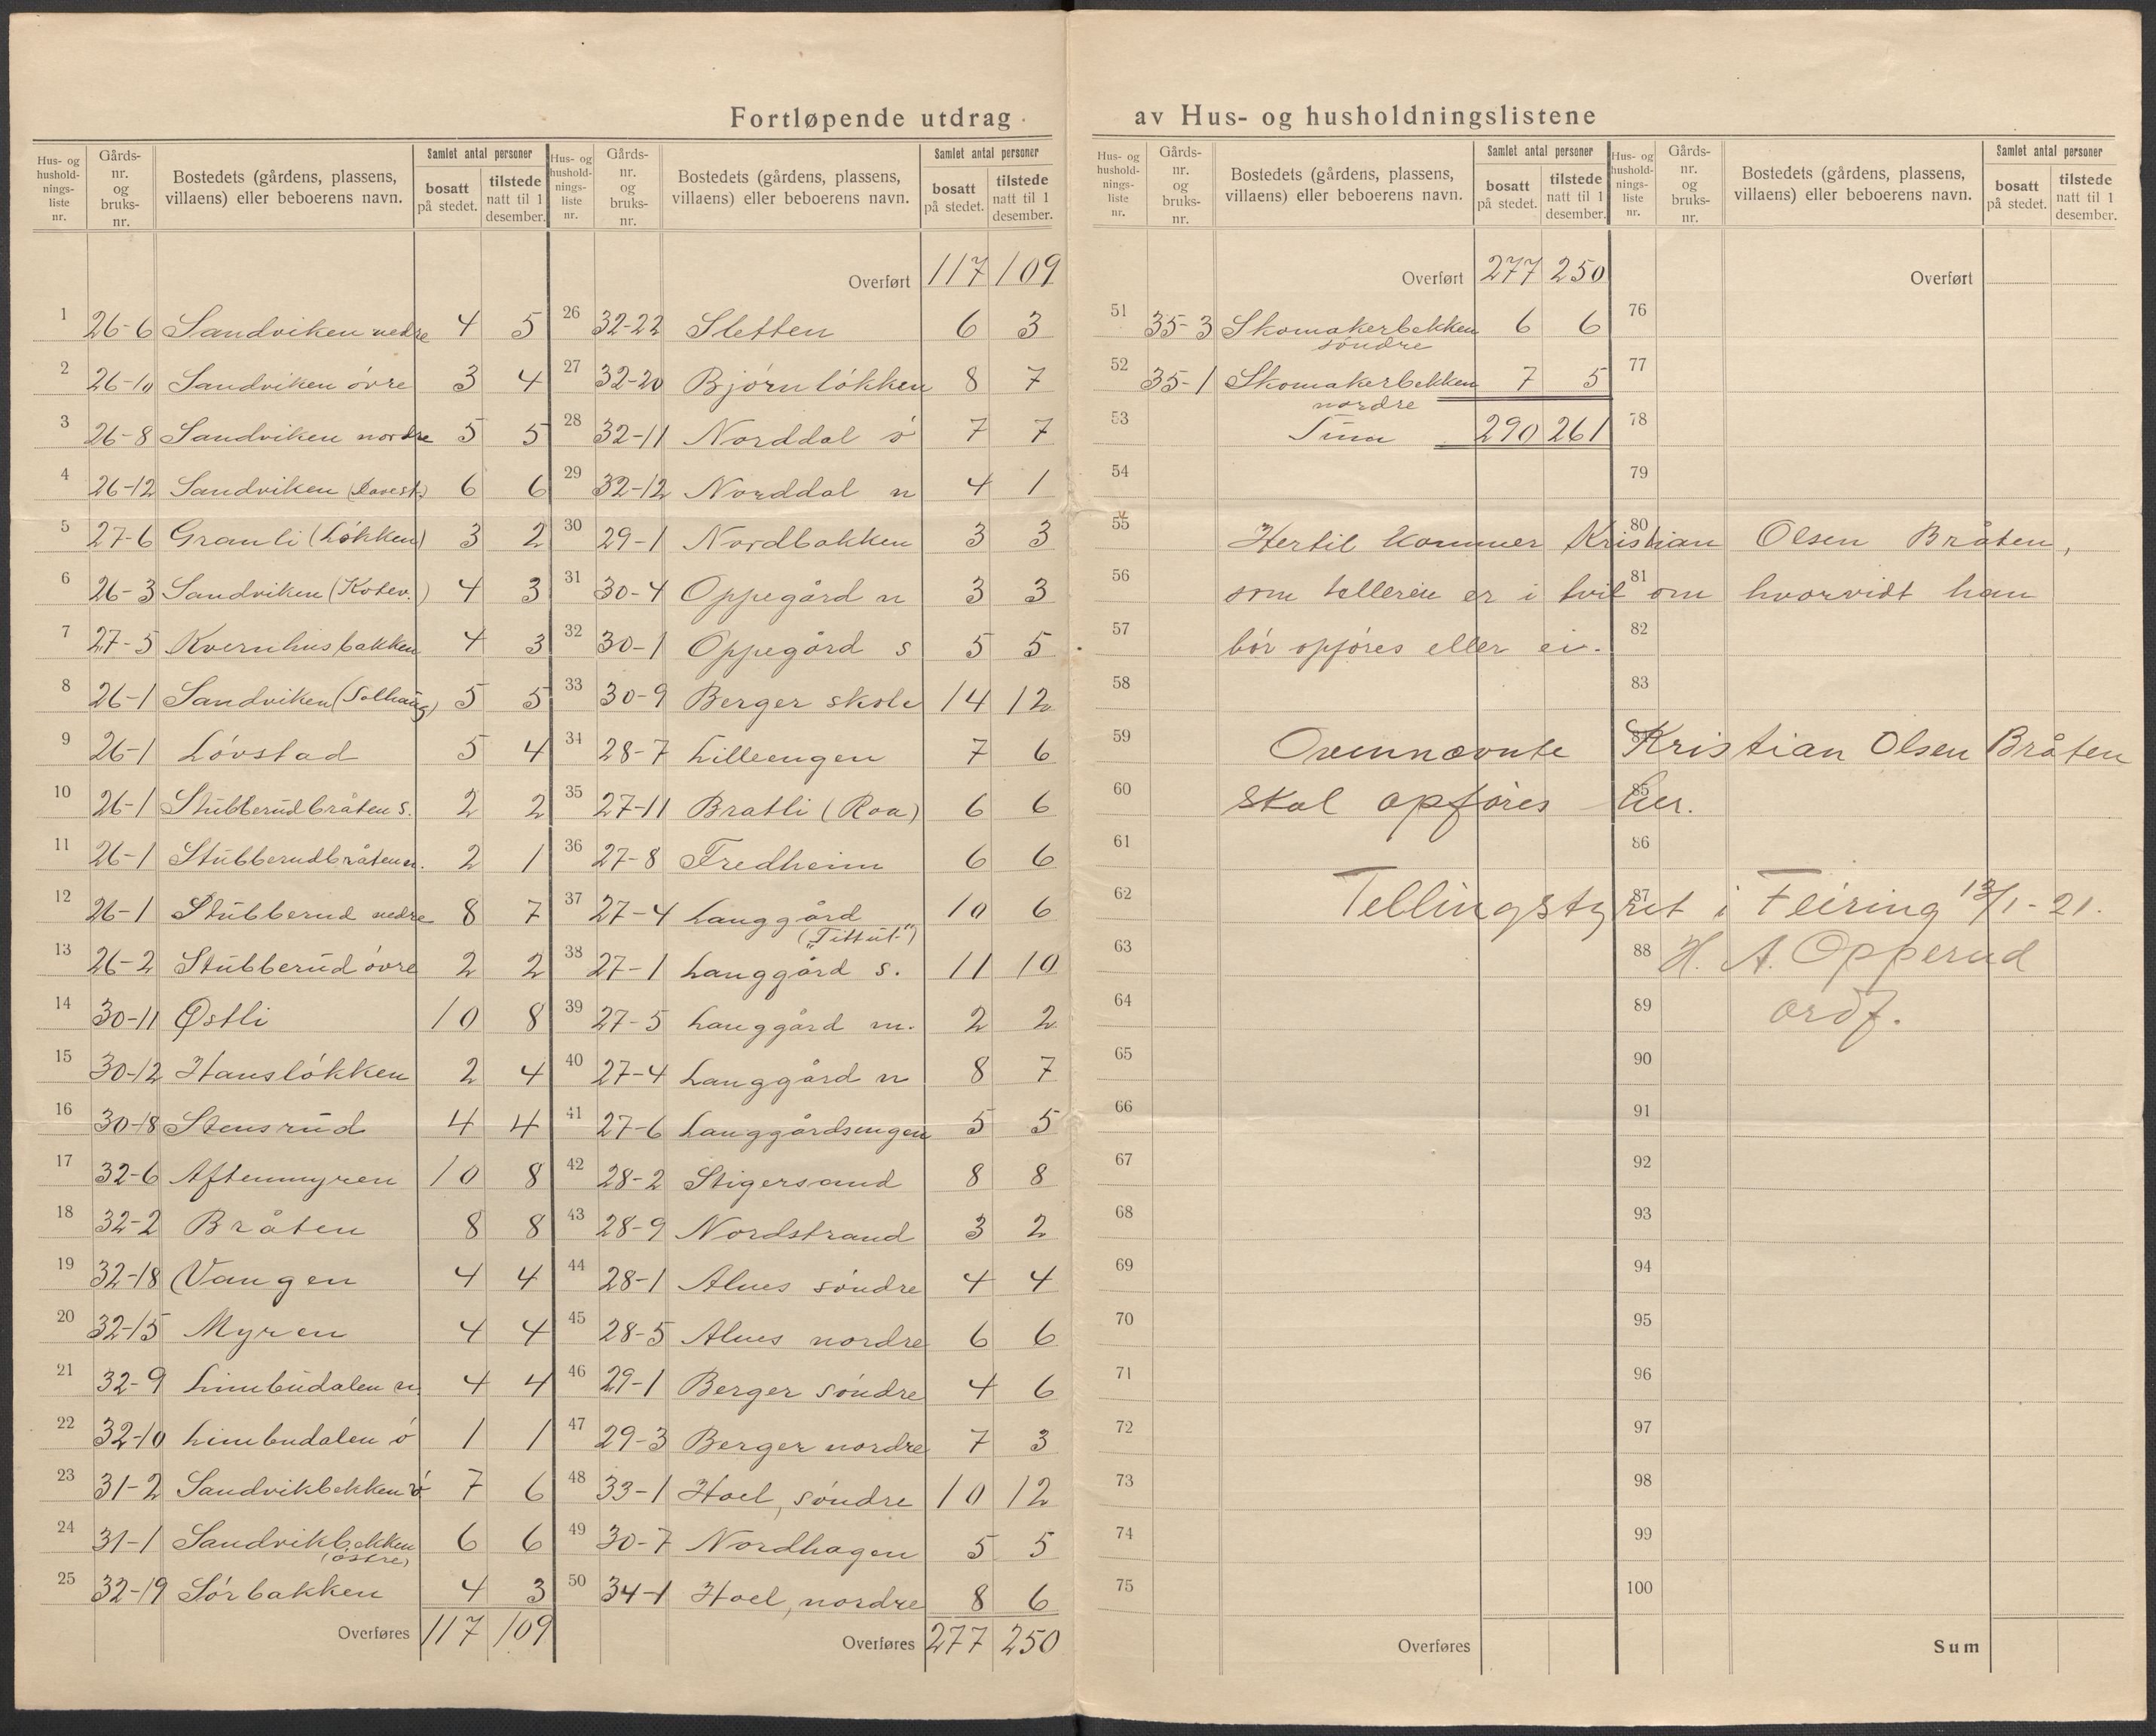 Fortløpende utdrag av Hus- og husholdningslistene
Hus- og hushold-nings-liste nr. | Gårds-nr. og bruks-nr. | Bostedets (gårdens, plassens, villaens) eller beboerens navn. | Samlet antal personer | bosatt på stedet. | tilstede natt til 1 desember.
1 26-6 Sandviken nedre 4 5
2 26-10 Sandviken övre 3 4
3 26-8 Sandviken nordre 5 5
4 26-12 Sandviken 6 6
5 27-6 Granli (Lökken) 3 2
6 26-3 Sandviken (Kotev.) 4 3
7 27-5 Kvernhusbakken 4 3
8 26-1 Sandviken (Solhaug) 5 5
9 26-1 Lövstad 5 4
10 26-1 Stubberudbråten s. 2 2
11 26-1 Stubberudbråten n. 2 1
12 26-1 Stubberud nedre 8 7
13 26-2 Stubberud övre 2 2
14 30-11 Østli 10 8
15 30-12 Hanslökken 2 4
16 30-18 Stensrud 4 4
17 32-6 Aftenmyren 10 8
18 32-2 Bråten 8 8
19 32-18 Vangen 4 4
20 32-15 Myren 4 4
21 32-9 Limbudalen n 4 4
22 32-10 Limbudalen ö 1 1
23 31-2 Sandvikbekken v 7 6
24 31-1 Sandvikbekken (östre) 6 6
25 32-19 Sörbakken 4 3
Overføres 117 109
Hus- og hushold-nings-liste nr. | Gårds-nr. og bruks-nr. | Bostedets (gårdens, plassens, villaens) eller beboerens navn. | Samlet antal personer | bosatt på stedet. | tilstede natt til 1 desember.
Overført 117 109
26 32-22 Sletten 6 3
27 32-20 Björnlökken 8 7
28 32-11 Norddal ö 7 7
29 32-12 Norddal n 4 1
30 29-1 Nordbakken 3 3
31 30-4 Oppegård n 3 3
32 30-1 Oppegård s 5 5
33 30-9 Berger skole 14 12
34 28-7 Lilleengen 7 6
35 27-11 Bratli (Roa) 6 6
36 27-8 Fredheim 6 6
37 27-4 Langgård („Tittut“) 10 6
38 27-1 Langgård s. 11 10
39 27-5 Langgård m. 2 2
40 27-4 Langgård n 8 7
41 27-6 Langgårdsengen 5 5
42 28-2 Stigersand 8 8
43 28-9 Nordstrand 3 2
44 28-1 Alnes söndre 4 4
45 28-5 Alnes nordre 6 6
46 29-1 Berger söndre 4 6
47 29-3 Berger nordre 7 3
48 33-1 Hoel, söndre 10 12
49 30-7 Nordhagen 5 5
50 34-1 Hoel, nordre 8 6
Overføres 277 250
Hus- og hushold-nings-liste nr. | Gårds-nr. og bruks-nr. | Bostedets (gårdens, plassens, villaens) eller beboerens navn. | Samlet antal personer | bosatt på stedet. | tilstede natt til 1 desember.
Overført 277 250
51 35-3 Skomakerbekken söndre 6 6
52 35-1 Skomakerbekken nordre 7 5
53 Sum 290 261
54
55 Hertil kommer Kristian Olsen Bråten,
56 som telleren er i tvil om hvorvidt han
57 bör opföres eller ei.
58
59 Ovennævnte Kristian Olsen Bråten
60 skal opføres her.
61
62 Tellingstyret i Feiring 13/1-21.
63 H. A. Opperud
64 ordf.
65
66
67
68
69
70
71
72
73
74
75
Overføres
Hus- og hushold-nings-liste nr. | Gårds-nr. og bruks-nr. | Bostedets (gårdens, plassens, villaens) eller beboerens navn. | Samlet antal personer | bosatt på stedet. | tilstede natt til 1 desember.
Overført
76
77
78
79
80
81
82
83
84
85
86
87
88
89
90
91
92
93
94
95
96
97
98
99
100
Sum